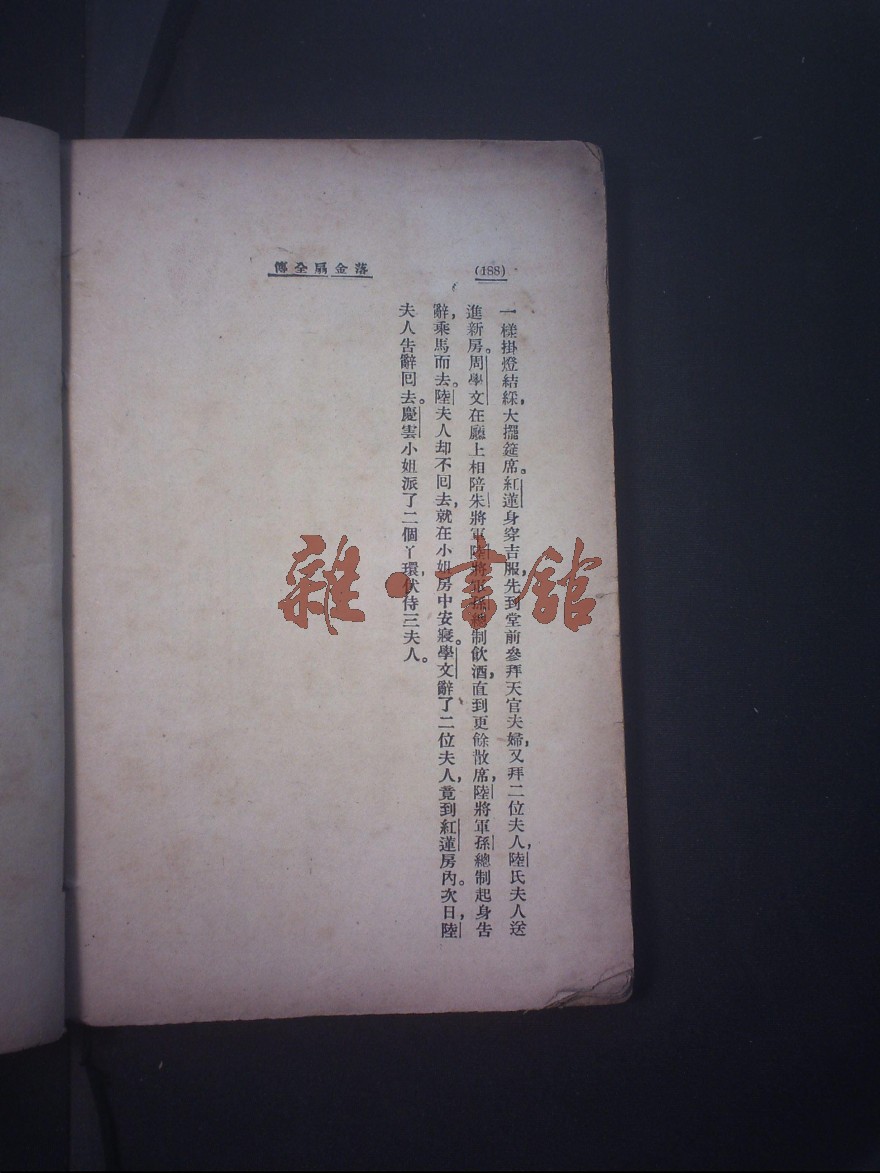 (188)
落金扇全傳
一樣掛燈結綵，大擺筵席。紅蓮身穿吉服，先到堂前參拜天官夫婦，又拜二位夫人，陸氏夫人送
進新房。周學文在廳上相陪朱將軍陸將軍孫總制飲酒，直到更餘散席，陸將軍孫總制起身告
辭，乘馬而去。陸夫人却不回去，就在小姐房中安寢。學文辭了二位夫人，竟到紅蓮房內。次日，陸
夫人告辭回去。慶雲小姐派了二個丫環，伏侍三夫人。
雜·書館